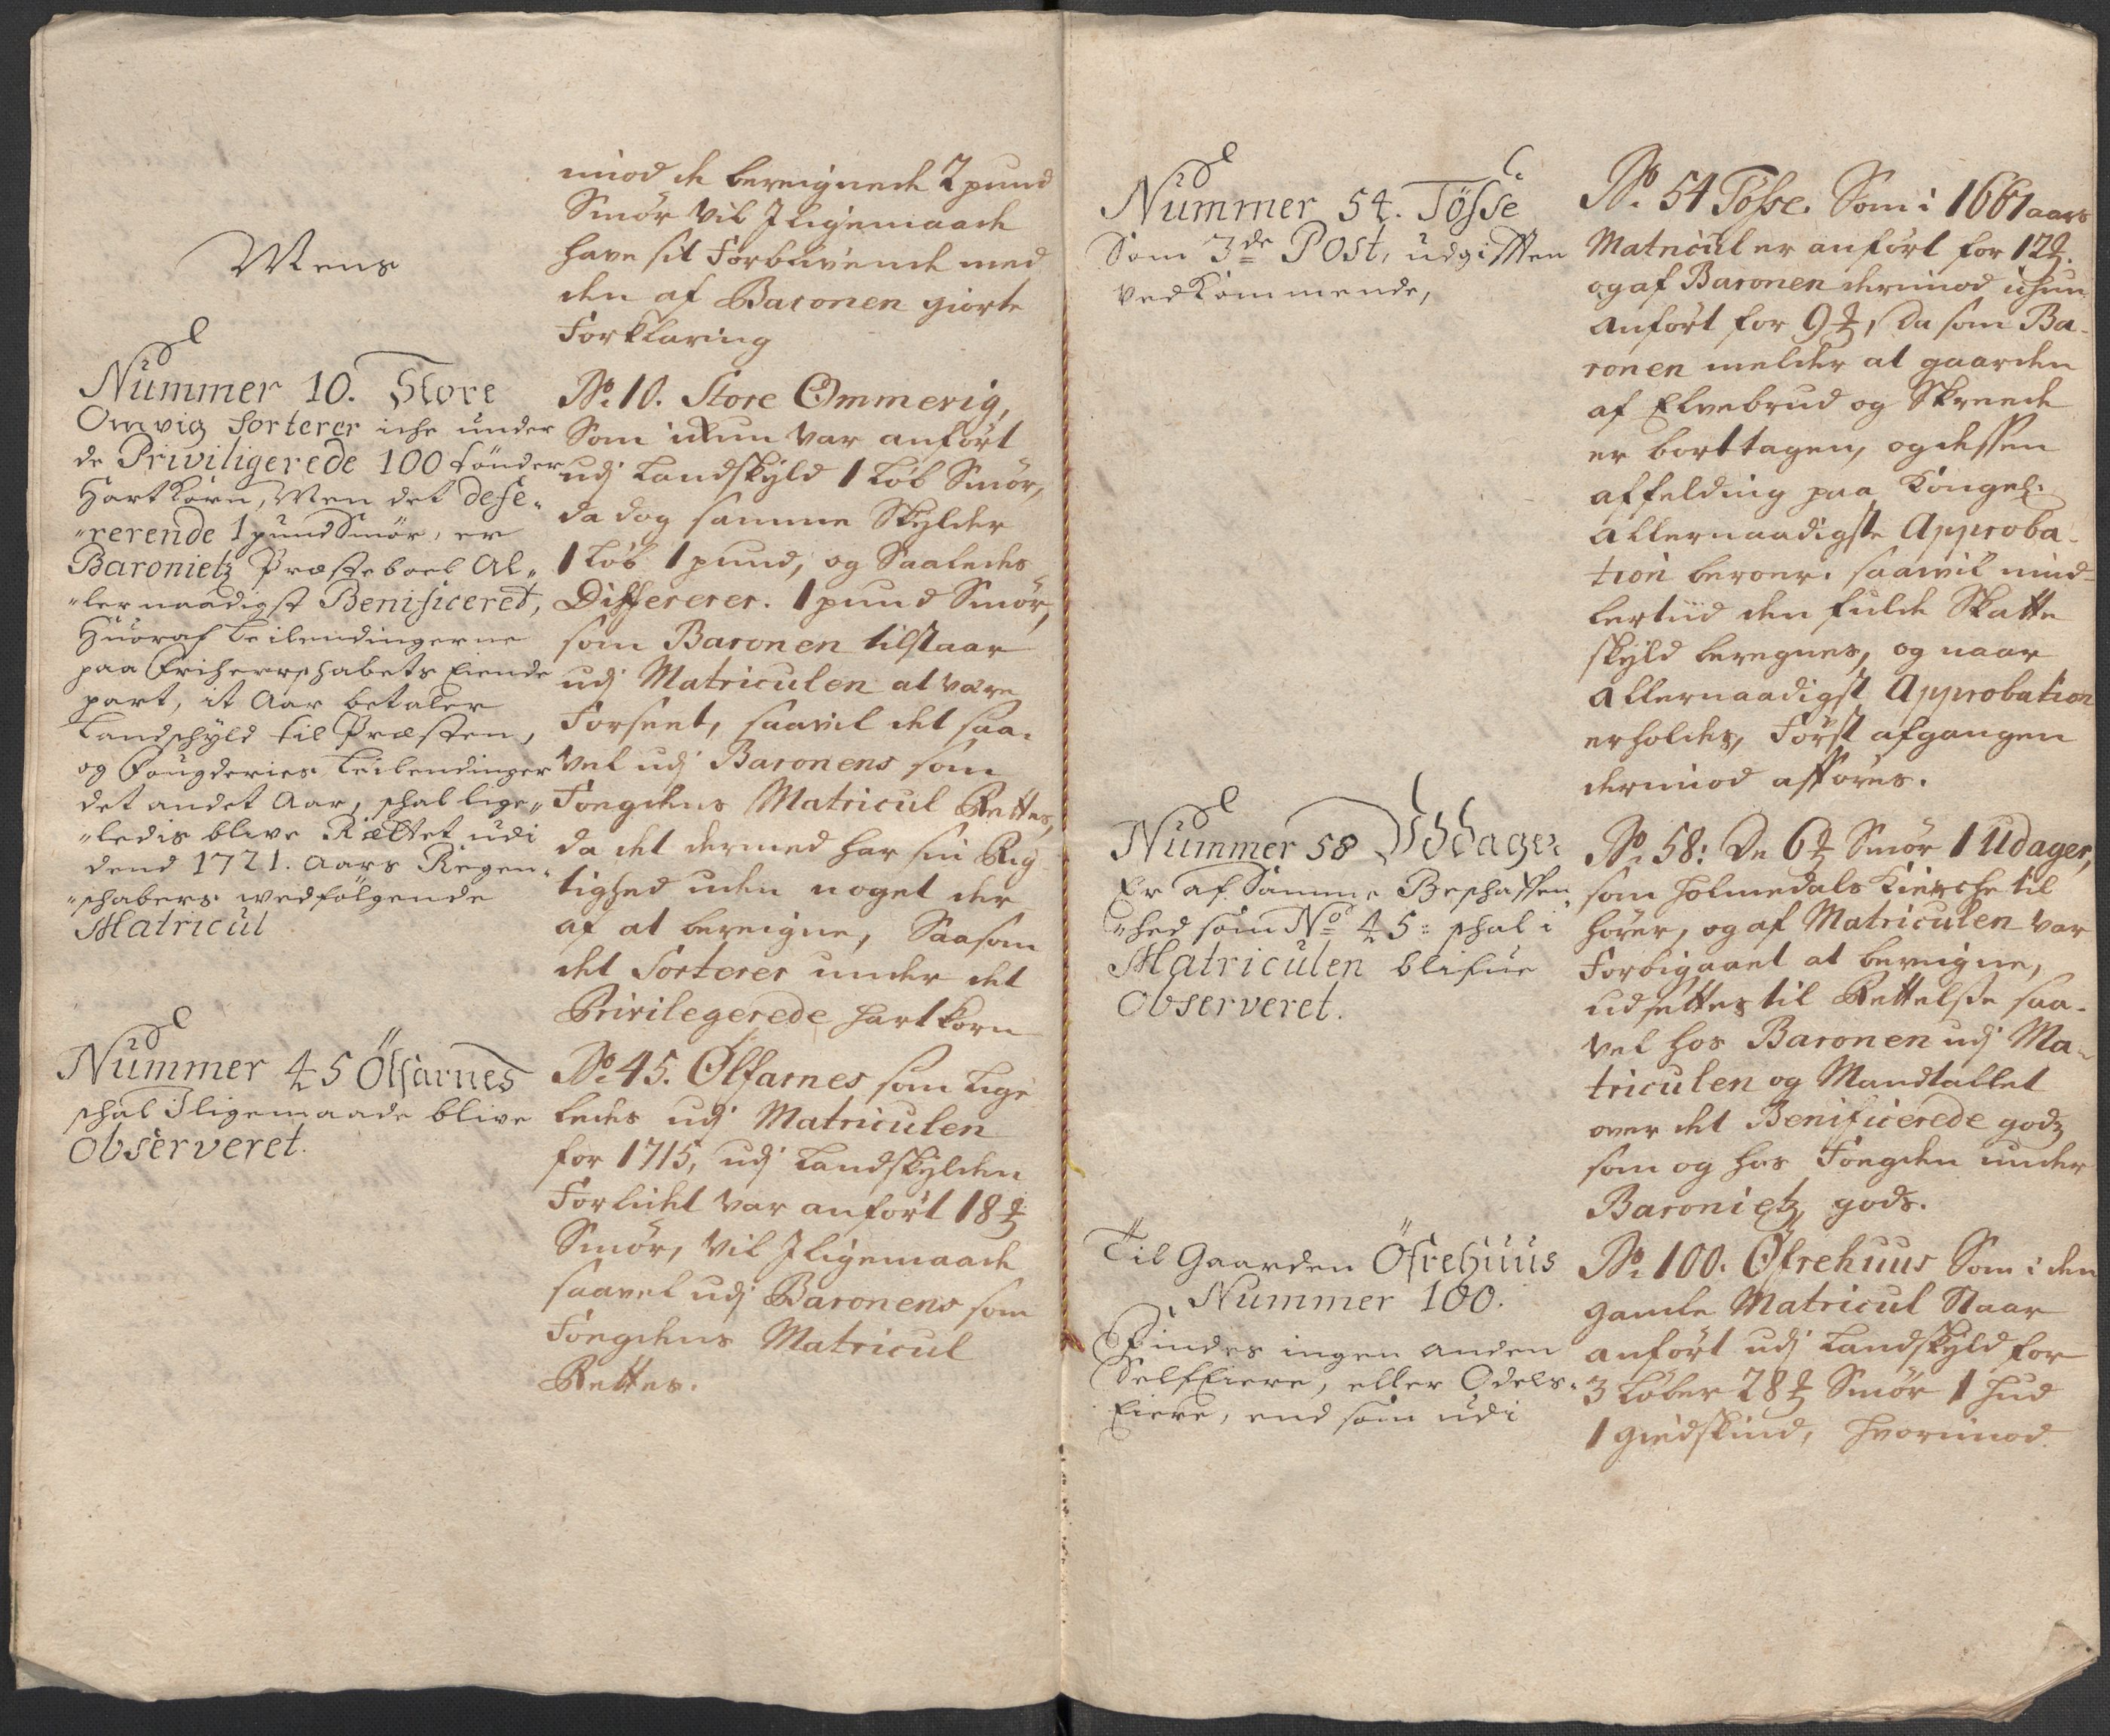 Mens
Nummer 10. Store
Omvig Sorterer iche under
de Priviligerede 100 tönder
Hartkorn, Men det defe-
-rerende 1 pund Smör, er
Baronietz Præsteboel Al-
-lernaadigst Benificeret,
Huoraf Leilendingerne
paa Friherrschabets Eiende
part, it Aar betaler
Landschyld til Præsten,
og Fougderies Leilendinger
det andet Aar, schal lige-
-ledis blive Rættet udi
dend 1721. Aars Regen-
-schabers wedfølgende
Matricul
Nummer 45 Ölfarnes
schal Iligemaade blive
Observeret.
imod de bereignede 2 pund
Smör vil Iligemaade
have sit Forblivende med
den af Baronen giorte
Forklaring
No. 10. Store Ommerig,
Som ickun var anfört
udj Landskyld 1 Löb Smör,
da dog samme Skylder
1 Löb 1 pund, og Saaledes
Differerer. 1 pund Smör,
som Baronen tilstaar
udj Matriculen at være
Forseet, saavil det saa-
vel udj Baronens som
Fougdens Matricul Rettes,
da det dermed har sin Rig-
tighed uden noget der
af at bereigne, Saasom
det Sorterer under det
Privilegerede Hartkorn
No. 45. Ölfarnes som Lige
ledes udj Matriculen
for 1715, udj Landskylden
Forlidet var anfört 18 ℔
Smör, vil Iligemaade
saavel udj Baronens som
Fougdens Matricul
Rettes.
Nummer 54. Tösse
Som 3de Post, udgifften
vedkommende,
Nummer 58 Uddager
Er af Samme Beschaffen-
-hed som No 45: schal i
Matriculen blifue
Observeret.
Til Gaarden Öfrehuus
Nummer 100.
Findes ingen anden
Selfeiere, eller Odels-
Eiere, end som udi
No. 54 Tösse. Som i 1661 aars
Matricul er anfört for 12 ℔.
og af Baronen derimod ichun
anfört for 9 ℔, Da som Ba-
ronen melder at gaarden
af Elvebrud og Skreede
er borttagen, og dessen
affelding paa Kongel:
allernaadigste Approba-
tion beroer. saavil mid-
lertiid den fulde Skatte
skyld beregnes, og naar
allernaadigst Approbation
erholdes, Först afgangen
derimod afföres.
No. 58: De 6 ℔ Smör i Udager,
som Holmedals Kierche til
hörer, og af Matriculen var
Forbigaaet at bereigne,
udsettes til Rettelse saa-
vel hos Baronen udj Ma-
triculen og Mandtallet
over det Benificerede godz
som og hos Fougden under
Baronietz gods.
No. 100. Öfrehuus Som i den
gamle Matricul Staar
anfört udj Landskyld for
3 Löber 28 ℔ Smör 1 Hud
1 giedskind, hvorimod